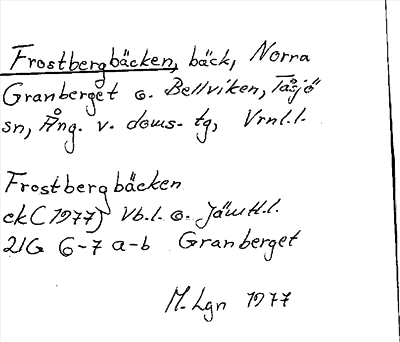 Frostbergbäcken, bäck, Norra
Granberget o. Bellviken, Tåsjö
sn, Ång. v. doms. tg, Vrnl.l.
Frostbergbäcken
ek (1977) Vb.l. o. Jämtl.l.
21G 6-7 a-b Granberget
M. Lgn 1977